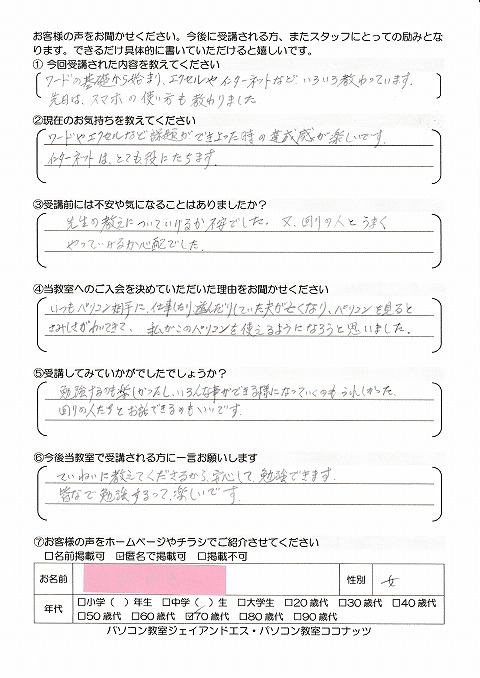 お客様の声をお聞かせください。今後に受講される方、またスタッフにとっての励みとな
ります。できるだけ具体的に書いていただけると嬉しいです。
① 今回受講された内容を教えてください
ワードの基礎から始まり、エクセルやインターネットなど、いろいろ教わっています。
先日は、スマホの使い方も教わりました
②現在のお気持ちを教えてください
ワードやエクセルなど課題ができ上った時の達成感が楽しいです。
インターネットは、とても役にたちます。
③受講前には不安や気になることはありましたか？
先生の教えについていけるか不安でした。又、回りの人とうまく
やっていけるか心配でした。
④当教室へのご入会を決めていただいた理由をお聞かせください
いつもパソコン相手に、仕事したり、遊んだりしていた夫が亡くなり、パソコンを見ると
さみしさがわいてきて、私がこのパソコンを使えるようになろうと思いました。
⑤受講してみていかがでしたでしょうか？
勉強するのも楽しかったし、いろんな事ができる様になっていくのもうれしかった。
回りの人たちとお話できるのもいいです。
⑥今後当教室で受講される方に一言お願いします
ていねいに教えてくださるから、安心して、勉強できます。
皆なで勉強するって、楽しいです。
⑦お客様の声をホームページやチラシでご紹介させてください
□名前掲載可 ☑匿名で掲載可 □掲載不可
お名前 性別 女
年代 □小学（ ）年生 □中学（ ）生 □大学生 □20歳代 □30歳代 □40歳代
□50歳代 □60歳代 ☑70歳代 □80歳代 □90歳代
パソコン教室ジェイアンドエス・パソコン教室ココナッツ